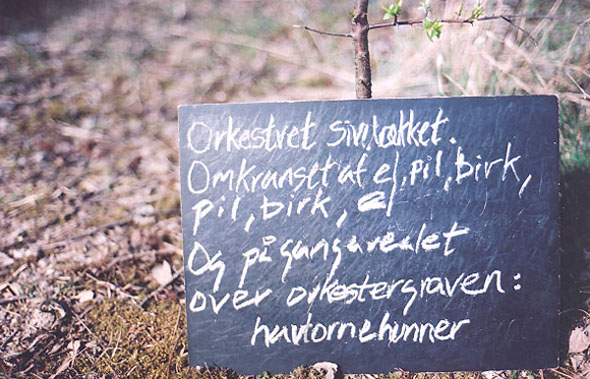 Orkestret siv,tækket.
Omkranset af el, pil, birk,
pil, birk, el
Og på gangarealet
over orkestergraven:
havtornehunner